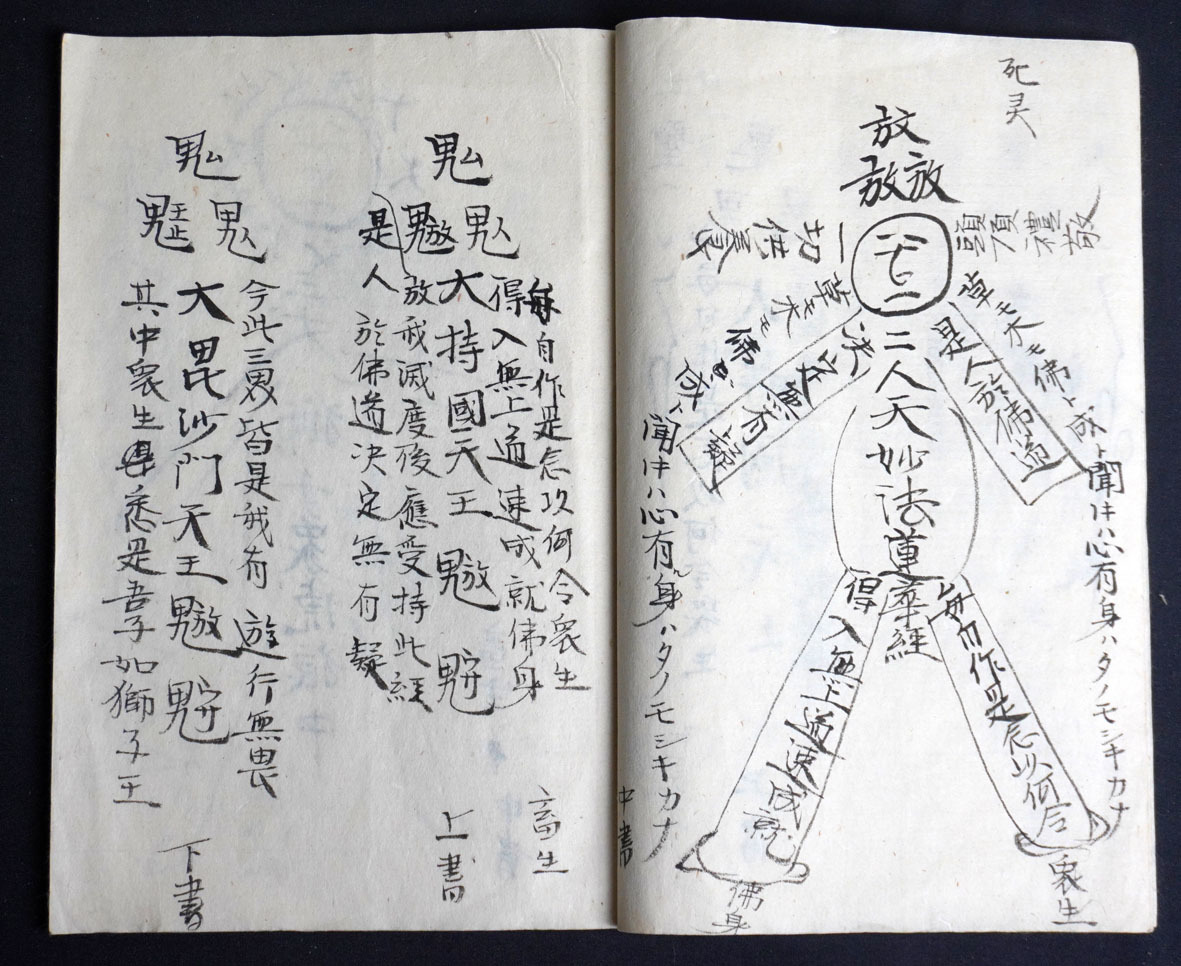 死灵
放
放放
敬禮頂頭
一切供養
二人天妙法蓮華経
草モ木モ佛ト成ト聞ケハ心有身ハタノモシキカナ
是人於佛道
草モ木モ佛
聞ケハ心有ル身ハタノモシキカナ
決定無有疑
毎自作是念以何令
衆生
得入無上道速成就
佛身
中書
毎自作是念以何令衆生
得入無上道速成就佛身
畜生
大持國天王
上書
放我滅度後應受持此経
是人於佛道決定無有疑
今此三界皆是我有 遊行無畏
大毘沙門天王
下書
其中衆生悉是吾子如獅子王